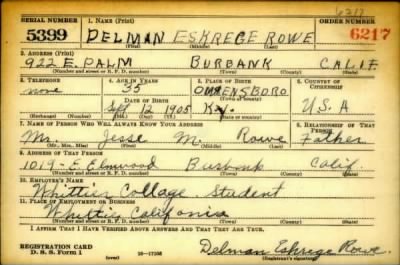 6217
SERIAL NUMBER 1. NAME (Print) ORDER NUMBER
5399 DELMAN ESKREGE ROWE 6217
(First) (Middle) (Last)
2. ADDRESS (Print)
922 E. PALM BURBANK CALIF
(Number and street or R. F. D. number) (Town) (County) (State)
3. TELEPHONE 4. AGE IN YEARS 5. PLACE OF BIRTH 6. COUNTRY OF CITIZENSHIP
none 35 OWENSBORO
DATE OF BIRTH (Town or county)
Sept 12 1905 Ky. U.S.A
(Exchange) (Number) (Mo.) (Day) (Yr.) (State or country)
7. NAME OF PERSON WHO WILL ALWAYS KNOW YOUR ADDRESS 8. RELATIONSHIP OF THAT PERSON
Mr. Jesse M. Rowe Father
(Mr., Mrs., Miss) (First) (Middle) (Last)
9. ADDRESS OF THAT PERSON
1019 E. Elmwood Burbank Calif.
(Number and street or R. F. D. number) (Town) (County) (State)
10. EMPLOYER'S NAME
Whittier Collage. Student
11. PLACE OF EMPLOYMENT OR BUSINESS
Whittier California
(Number and street or R. F. D. number) (Town) (County) (State)
I AFFIRM THAT I HAVE VERIFIED ABOVE ANSWERS AND THAT THEY ARE TRUE.
REGISTRATION CARD
D. S. S. Form 1 (over) Delman Eskrege Rowe.
(Registrant's signature)